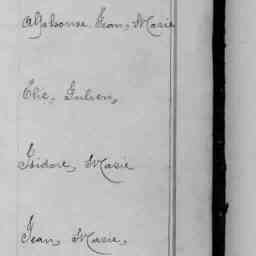 Alphonse Jean, Marie
Elie, Julien,
Isidore, Marie
Jean, Marie,